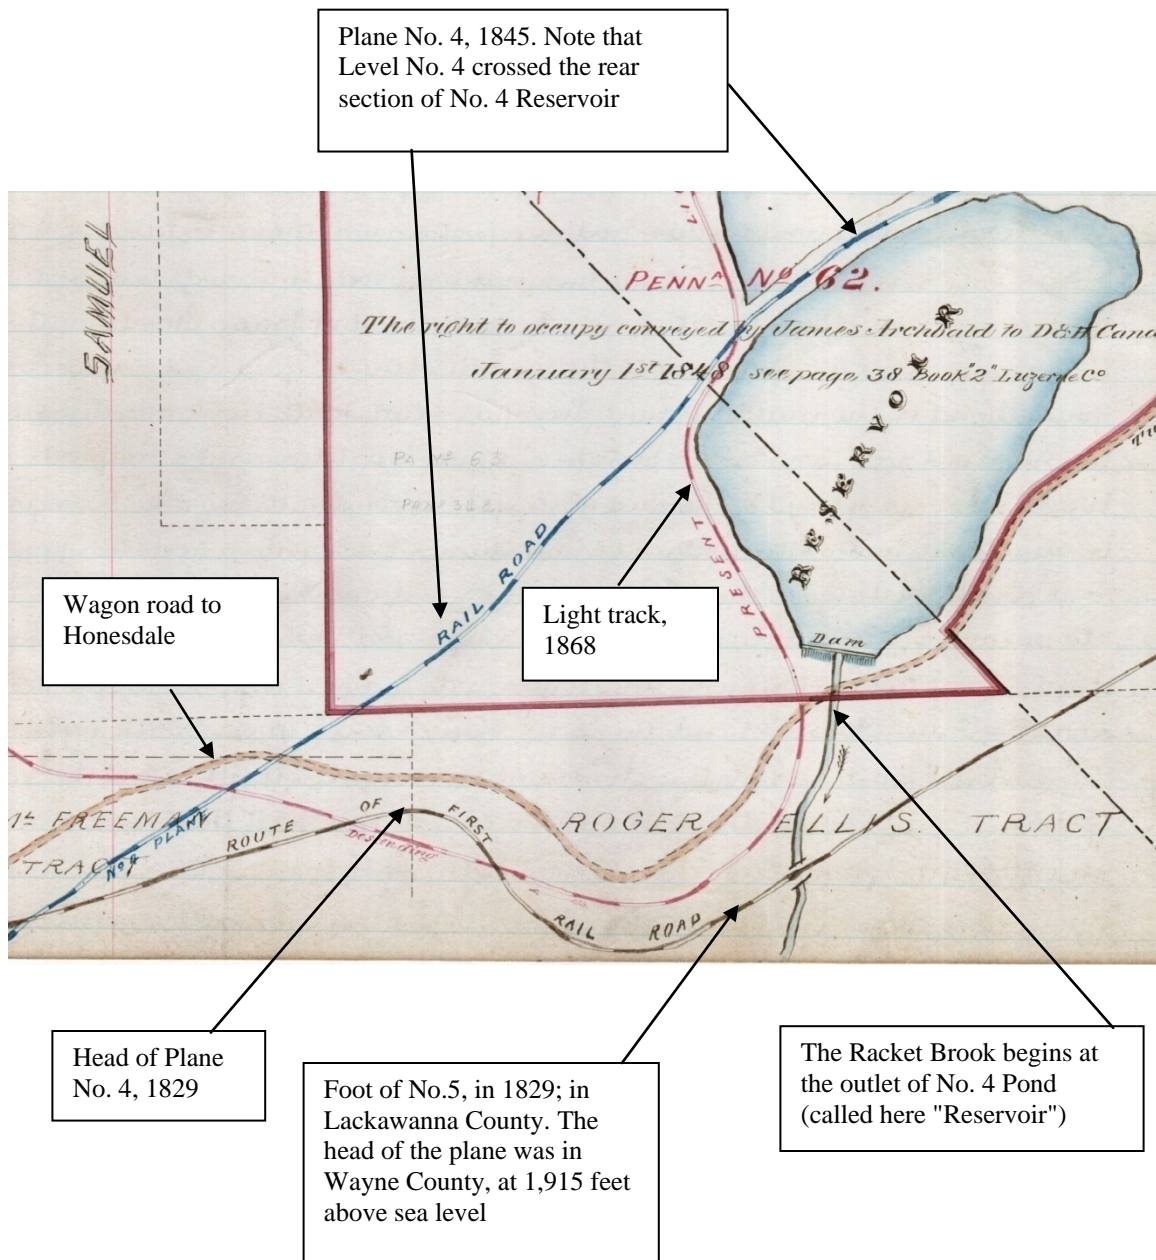 Plane No. 4, 1845. Note that
Level No. 4 crossed the rear
section of No. 4 Reservoir
SAMUEL
PENNA No 62.
The right to occupy conveyed by James Archbald to D&H Cana
January 1st 1848 see page 38 Book "2" Luzerne Co
RESERVOIR
PA No 63
RAIL ROAD
PRESENT
LI
Wagon road to
Honesdale
Light track,
1868
Dam
FREEMAN
TRACT
No 4 PLANE
ROUTE OF FIRST
RAIL ROAD
Descending
ROGER ELLIS. TRACT
Head of Plane
No. 4, 1829
Foot of No.5, in 1829; in
Lackawanna County. The
head of the plane was in
Wayne County, at 1,915 feet
above sea level
The Racket Brook begins at
the outlet of No. 4 Pond
(called here "Reservoir")